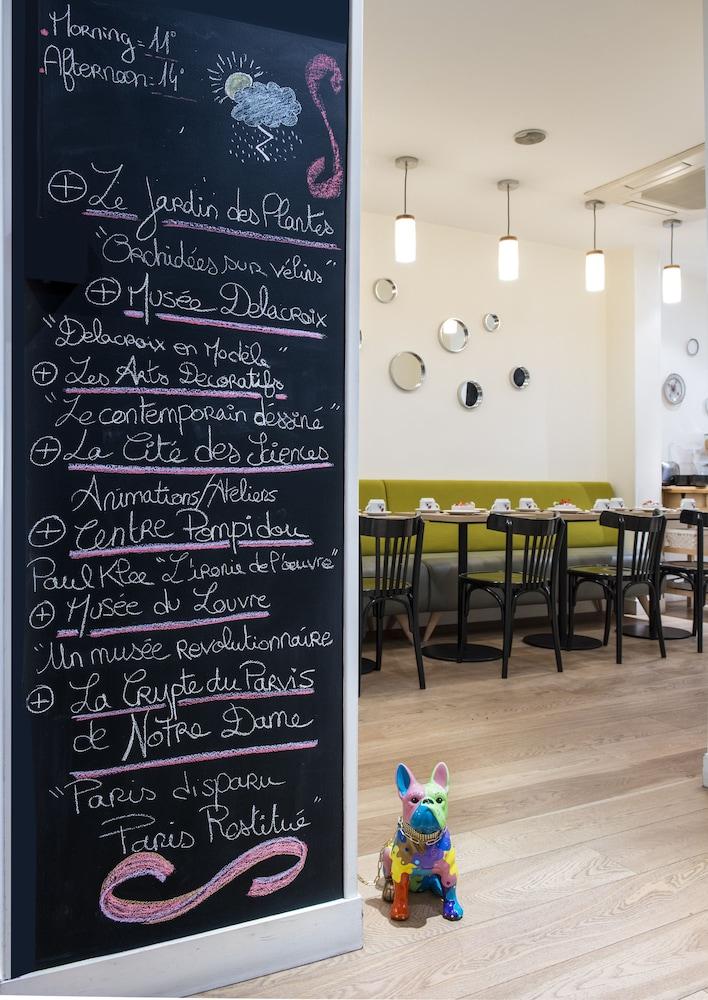 Morning = 11°
Afternoon = 14°
⊕ Le Jardin des Plantes
"Orchidées sur vélins"
⊕ Musée Delacroix
"Delacroix en Modèle"
⊕ Les Arts Decoratifs
"Le contemporain dessiné"
⊕ La Cité des Sciences
Animations/Ateliers
⊕ Centre Pompidou
Paul Klee "L'ironie de l'oeuvre"
⊕ Musée du Louvre
"Un musée Revolutionnaire
⊕ La Crypte du Parvis
de Notre Dame
"Paris disparu
Paris Restitué"